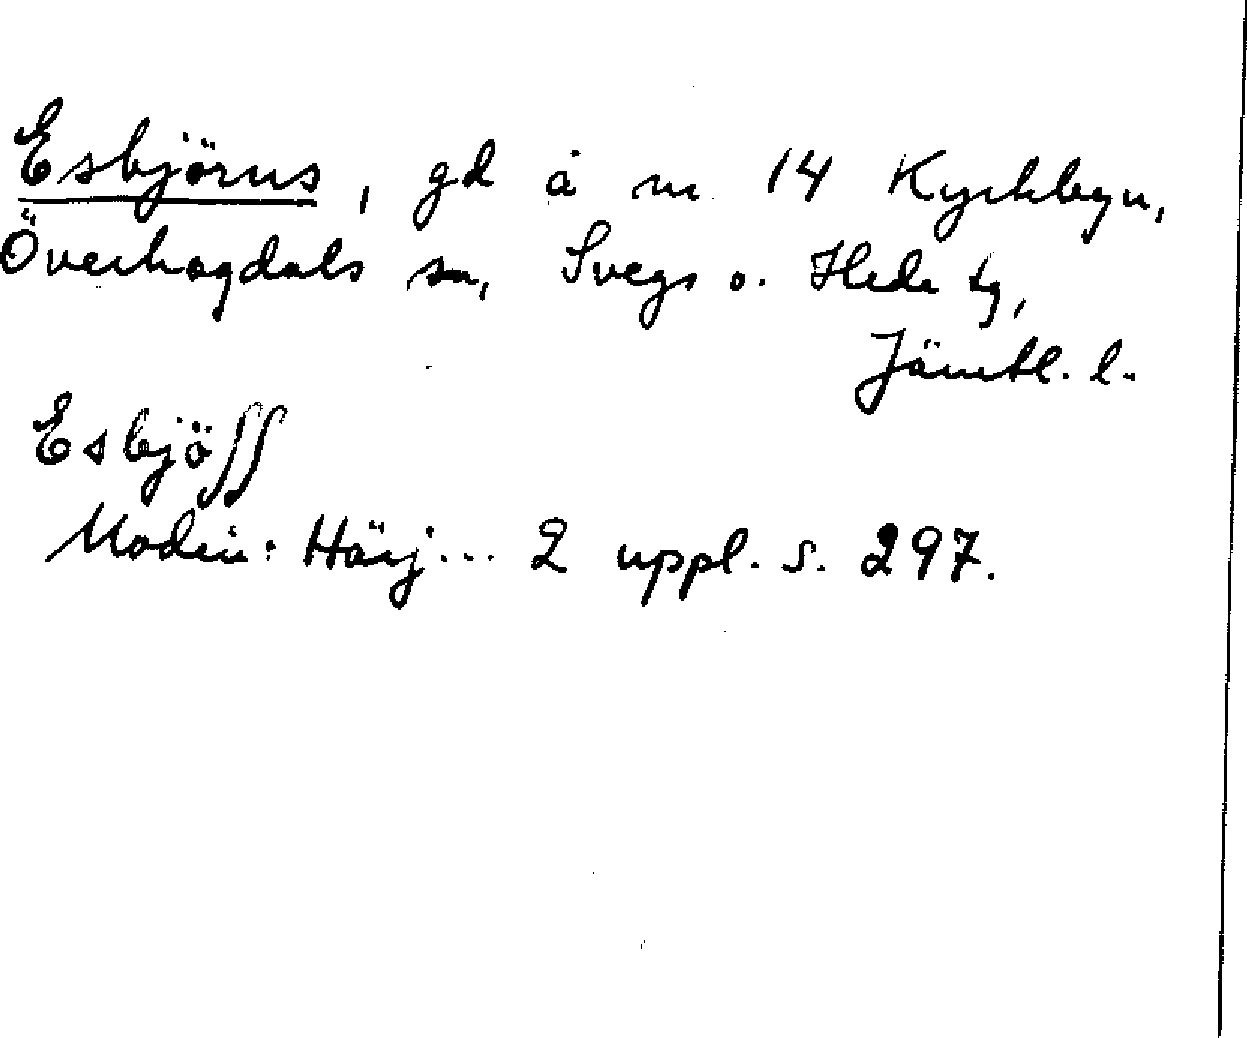 Esbjörns, gd å nr 14 Kyrkbyn,
Överhogdals sn, Svegs o. Hede tg,
Jämtl. l.
Esbjöʃʃ
Modin: Härj... 2 uppl. s. 297.